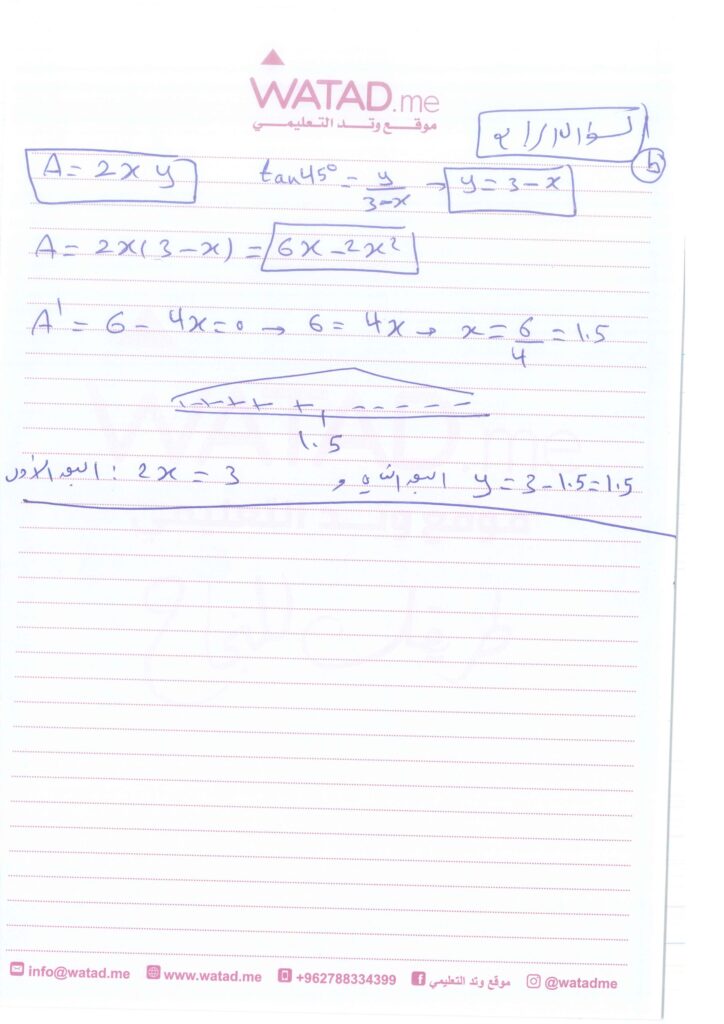 WATAD.me
موقع وتد التعليمي
السؤال الرابع
b
A = 2xy   tan45° = y/(3-x) → y = 3-x
A = 2x(3-x) = 6x-2x²
A' = 6 - 4x = 0 → 6 = 4x → x = 6/4 = 1.5
+ + + + + - - - - -
1.5
البعد الأول : 2x = 3 و البعد الثاني y = 3-1.5 = 1.5
info@watad.me www.watad.me +962788334399 موقع وتد التعليمي @watadme